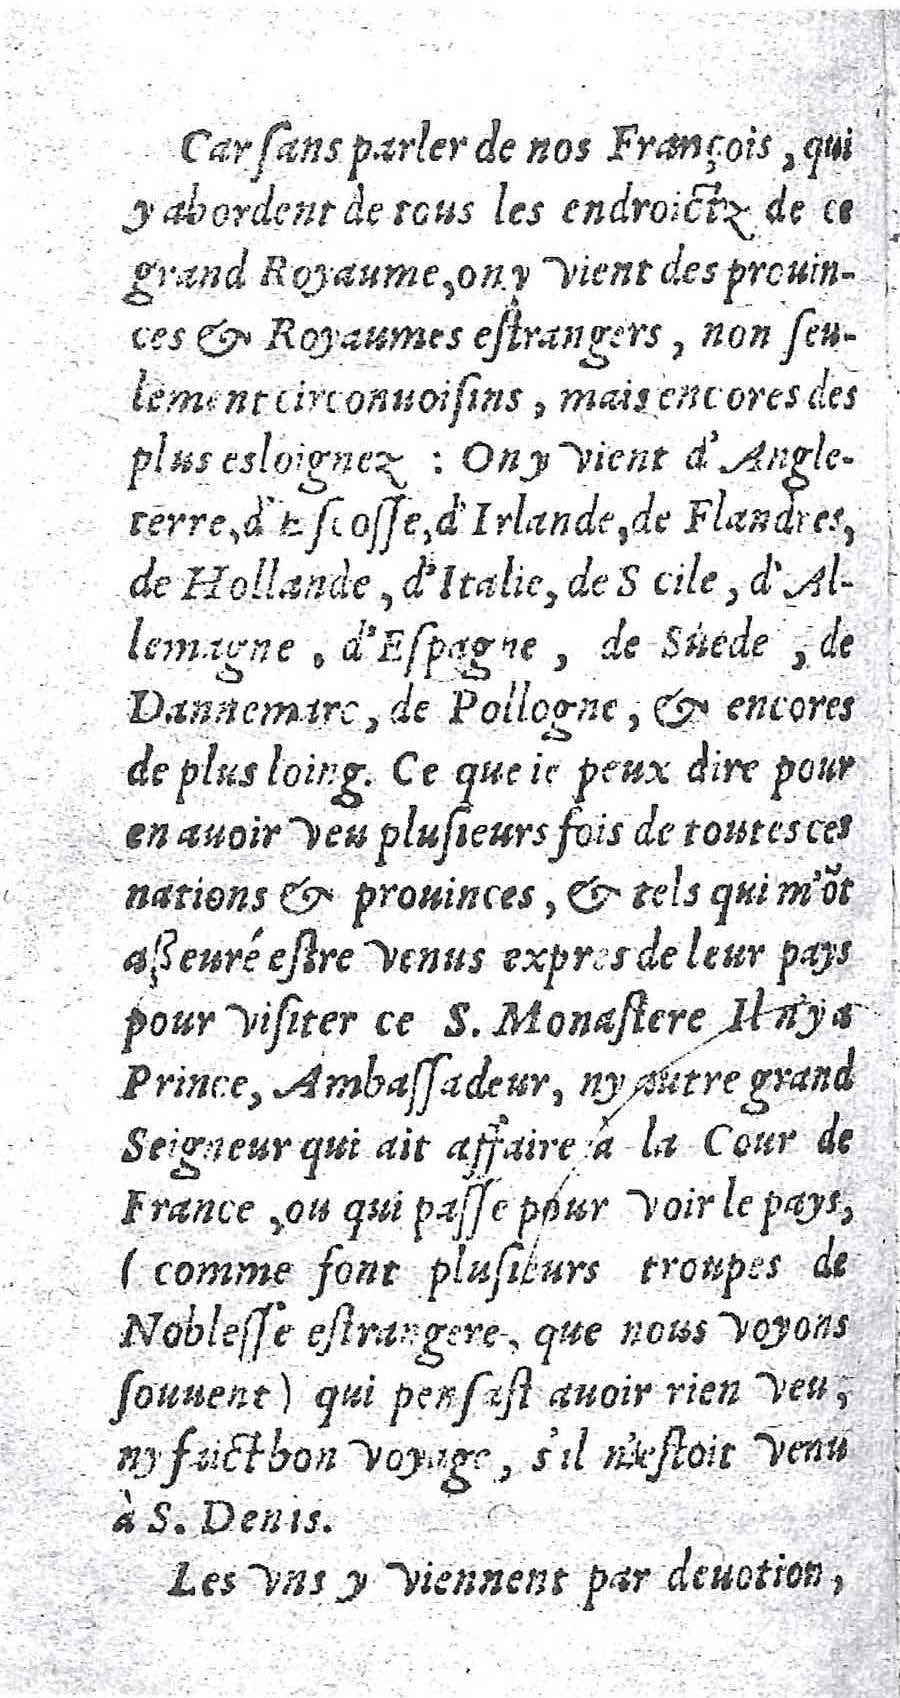 Car ſans parler de nos François, qui
y abordent de tous les endroictz de ce
grand Royaume, on y vient des prouin-
ces & Royaumes eſtrangers, non ſeu-
lement circonuoiſins, mais encores des
plus esloignez : On y vient d'Angle-
terre, d'Eſcoſſe, d'Irlande, de Flandres,
de Hollande, d'Italie, de S cile, d'Al-
lemagne, d'Eſpagne, de Suede, de
Dannemarc, de Pollogne, & encores
de plus loing. Ce que ie peux dire pour
en auoir veu pluſieurs fois de toutes ces
nations & prouinces, & tels qui m'õt
aſſeuré eſtre venus expres de leur pays
pour viſiter ce S. Monaſtere Il n'y a
Prince, Ambaſſadeur, ny autre grand
Seigneur qui ait affaire à la Cour de
France, ou qui paſſe pour voir le pays,
( comme font pluſieurs troupes de
Nobleſſe eſtrangere, que nous voyons
ſouuent) qui penſaſt auoir rien veu,
ny faict bon voyage, s'il n'eſtoit venu
à S. Denis.
Les vns y viennent par deuotion,